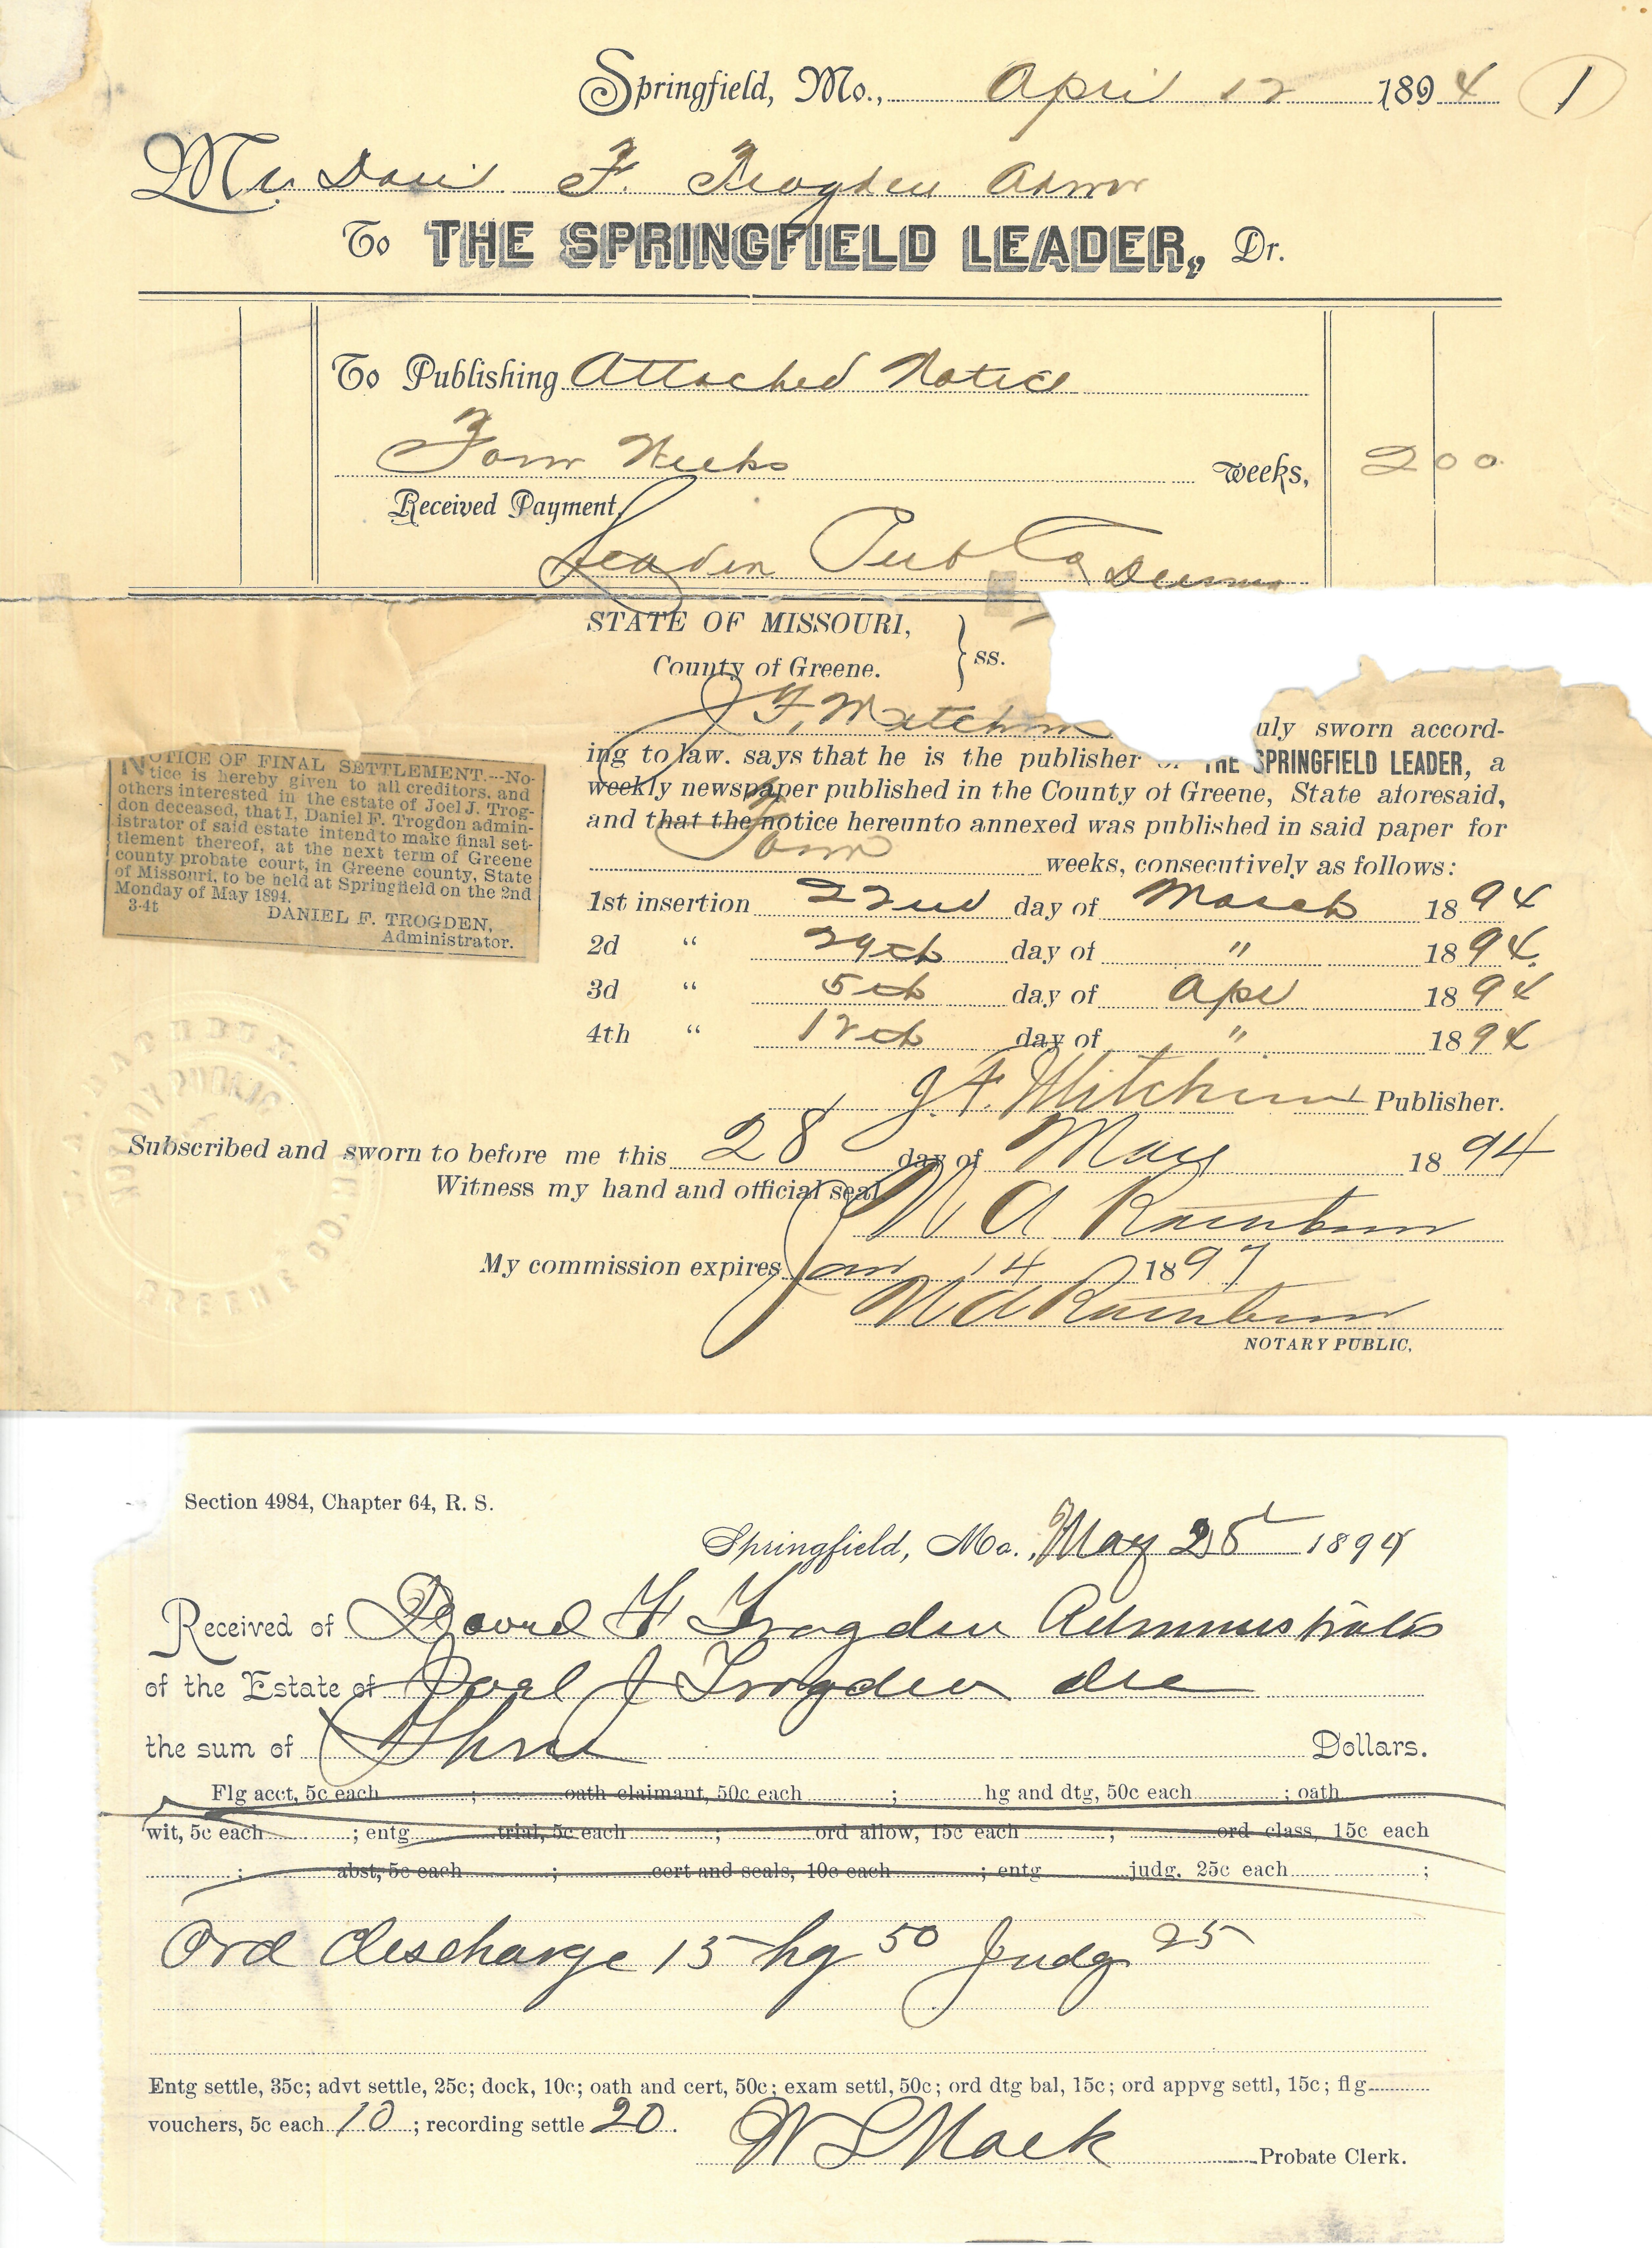 Springfield, Mo., April 12 1894 1
Mr. Dan F. Trogden Admr
To THE SPRINGFIELD LEADER, Dr.
To Publishing Attached Notice
Four Weeks weeks, 2 00
Received Payment,
Leader Pub Co
STATE OF MISSOURI, } ss.
County of Greene.
J. F. Mitchim uly sworn accord-
ing to law. says that he is the publisher THE SPRINGFIELD LEADER, a
weekly newspaper published in the County of Greene, State aforesaid,
and that the notice hereunto annexed was published in said paper for
Four weeks, consecutively as follows:
NOTICE OF FINAL SETTLEMENT.---No-
tice is hereby given to all creditors, and
others interested in the estate of Joel J. Trog-
don deceased, that I, Daniel F. Trogdon admin-
istrator of said estate intend to make final set-
tlement thereof, at the next term of Greene
county probate court, in Greene county, State
of Missouri, to be held at Springfield on the 2nd
Monday of May 1894.
3-4t DANIEL F. TROGDEN,
Administrator.
1st insertion 22nd day of March 1894
2d “ 29th day of " 1894.
3d “ 5th day of Apr 1894
4th “ 12th day of " 1894
J. F. Mitchim Publisher.
Subscribed and sworn to before me this 28 day of May 1894
Witness my hand and official seal.
NOTARY PUBLIC
GREENE CO.
My commission expires Jan 14 1897
NOTARY PUBLIC.
Section 4984, Chapter 64, R. S.
Springfield, Mo., May 28 1894
Received of David F Trogden Administrator
of the Estate of Joel J Trogden dec
the sum of Three Dollars.
Flg acct, 5c each ; oath claimant, 50c each ; hg and dtg, 50c each ; oath
wit, 5c each ; entg trial, 5c each ; ord allow, 15c each ; ord class, 15c each
; abst, 5c each ; cert and seals, 10c each ; entg judg. 25c each ;
Ord discharge 15 hg 50 Judg 25
Entg settle, 35c; advt settle, 25c; dock, 10c; oath and cert, 50c; exam settl, 50c; ord dtg bal, 15c; ord appvg settl, 15c; flg
vouchers, 5c each 10 ; recording settle 20.
W L Mack Probate Clerk.